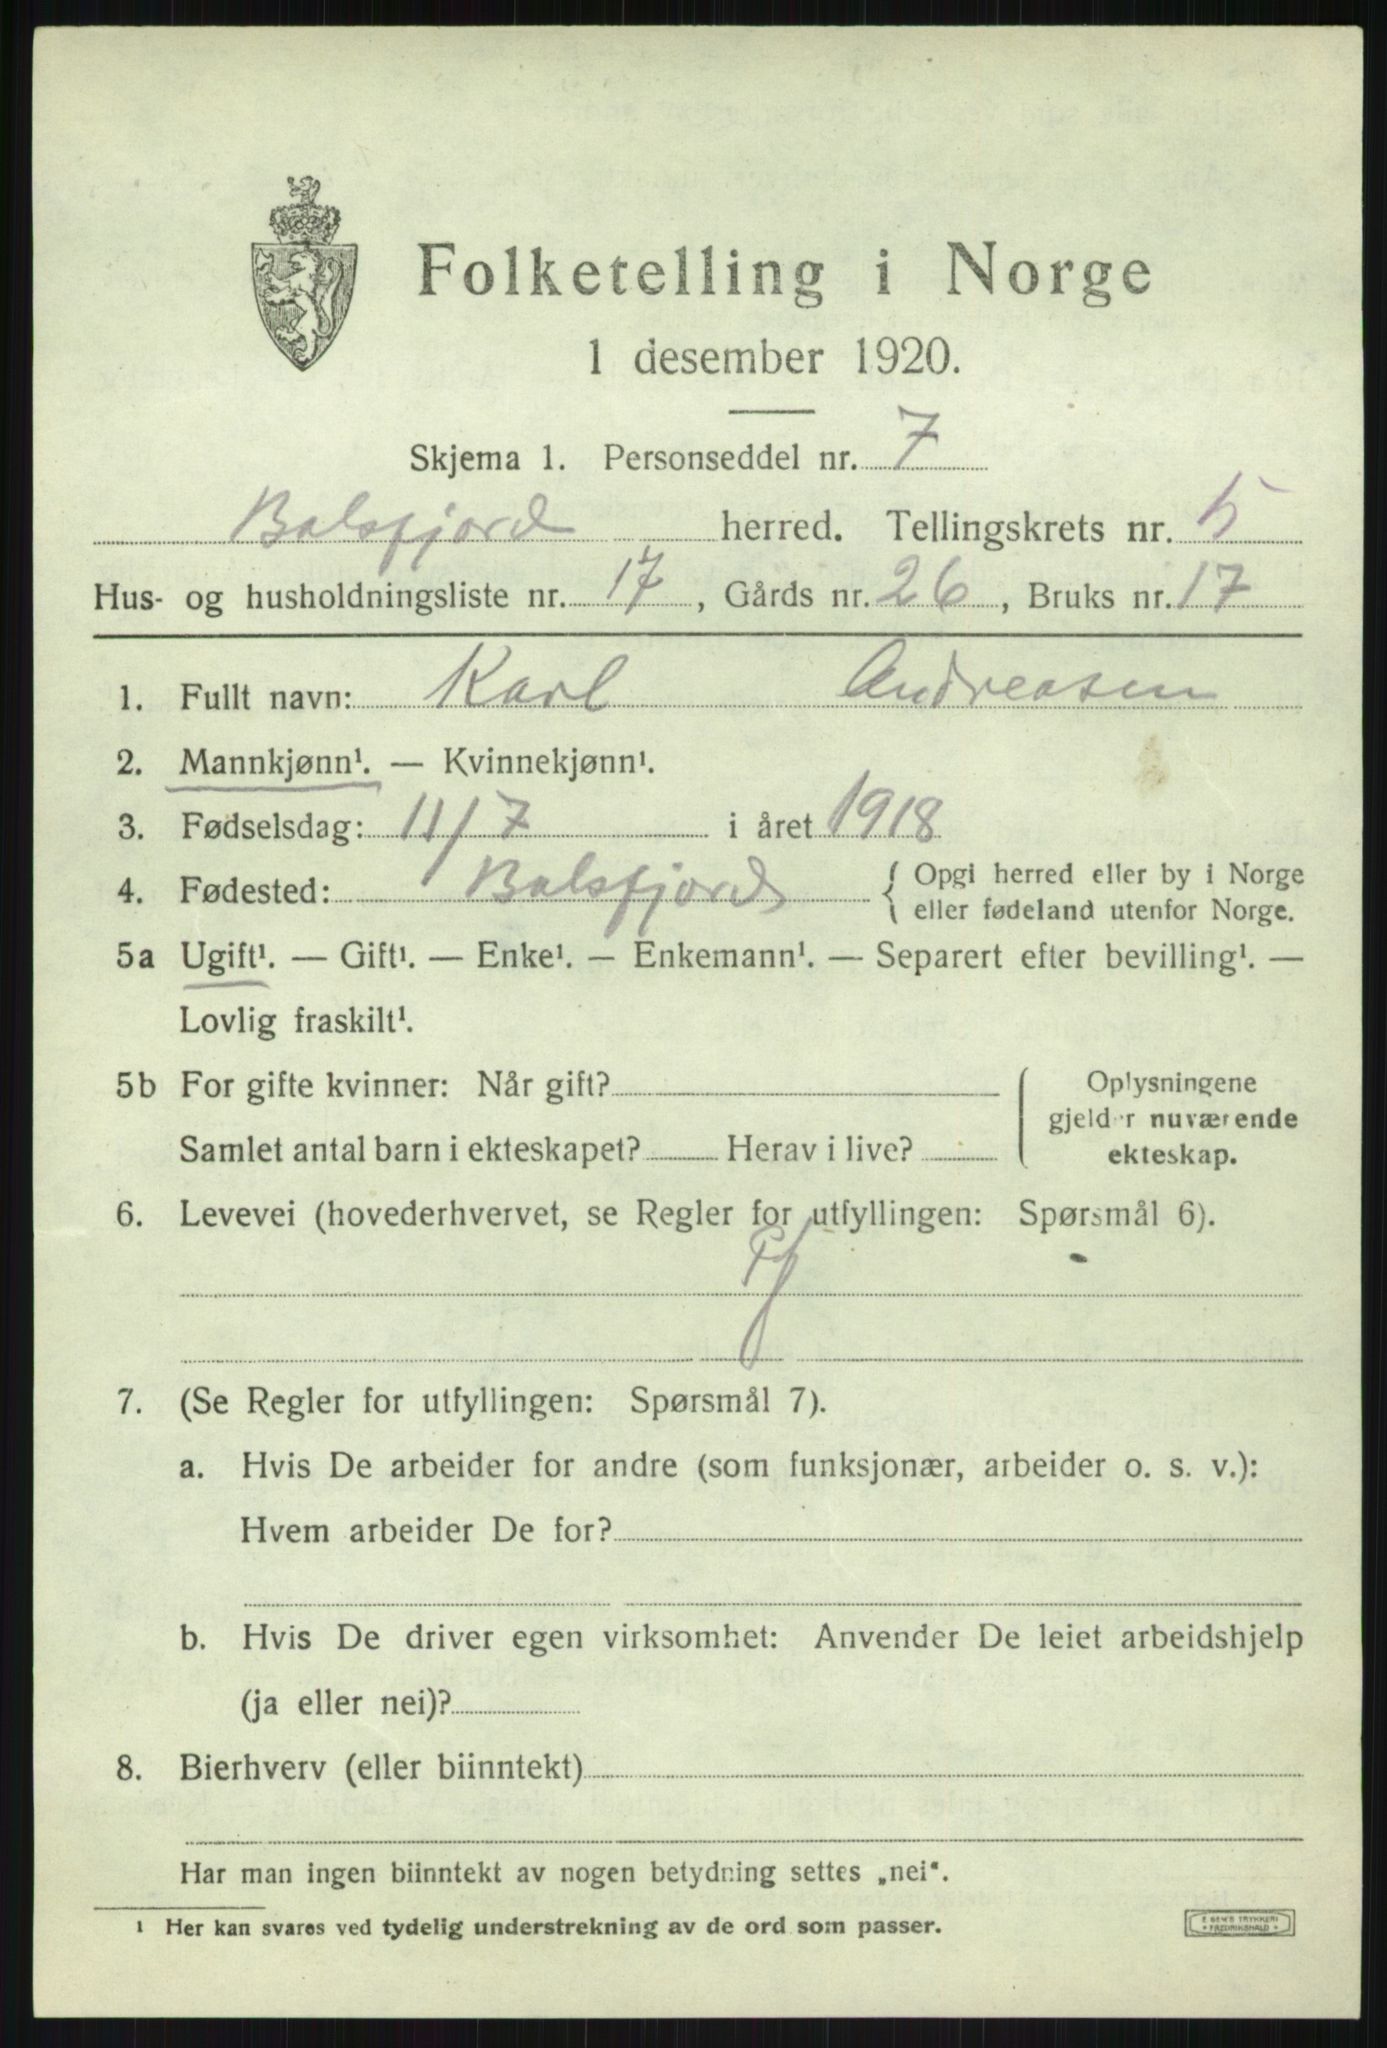 Folketelling i Norge
1 desember 1920.
Skjema 1. Personseddel nr. 7
Balsfjord herred. Tellingskrets nr. 5
Hus- og husholdningsliste nr. 17, Gårds nr. 26, Bruks nr. 17
1. Fullt navn: Karl Andreasen
2. Mannkjønn¹. — Kvinnekjønn¹.
3. Fødselsdag: 11/7 i året 1918
4. Fødested: Balsfjord { Opgi herred eller by i Norge
eller fødeland utenfor Norge.
5a Ugift¹. — Gift¹. — Enke¹. — Enkemann¹. — Separert efter bevilling¹. —
Lovlig fraskilt¹.
5b For gifte kvinner: Når gift?
Samlet antal barn i ekteskapet? Herav i live?
Oplysningene
gjelder nuværende
ekteskap.
6. Levevei (hovederhvervet, se Regler for utfyllingen: Spørsmål 6).
7. (Se Regler for utfyllingen: Spørsmål 7).
a. Hvis De arbeider for andre (som funksjonær, arbeider o. s. v.):
Hvem arbeider De for?
b. Hvis De driver egen virksomhet: Anvender De leiet arbeidshjelp
(ja eller nei)?
8. Bierhverv (eller biinntekt)
Har man ingen biinntekt av nogen betydning settes „nei“.
¹ Her kan svares ved tydelig understrekning av de ord som passer.
E SEM'S TRYKKERI
FREDRIKSHALD